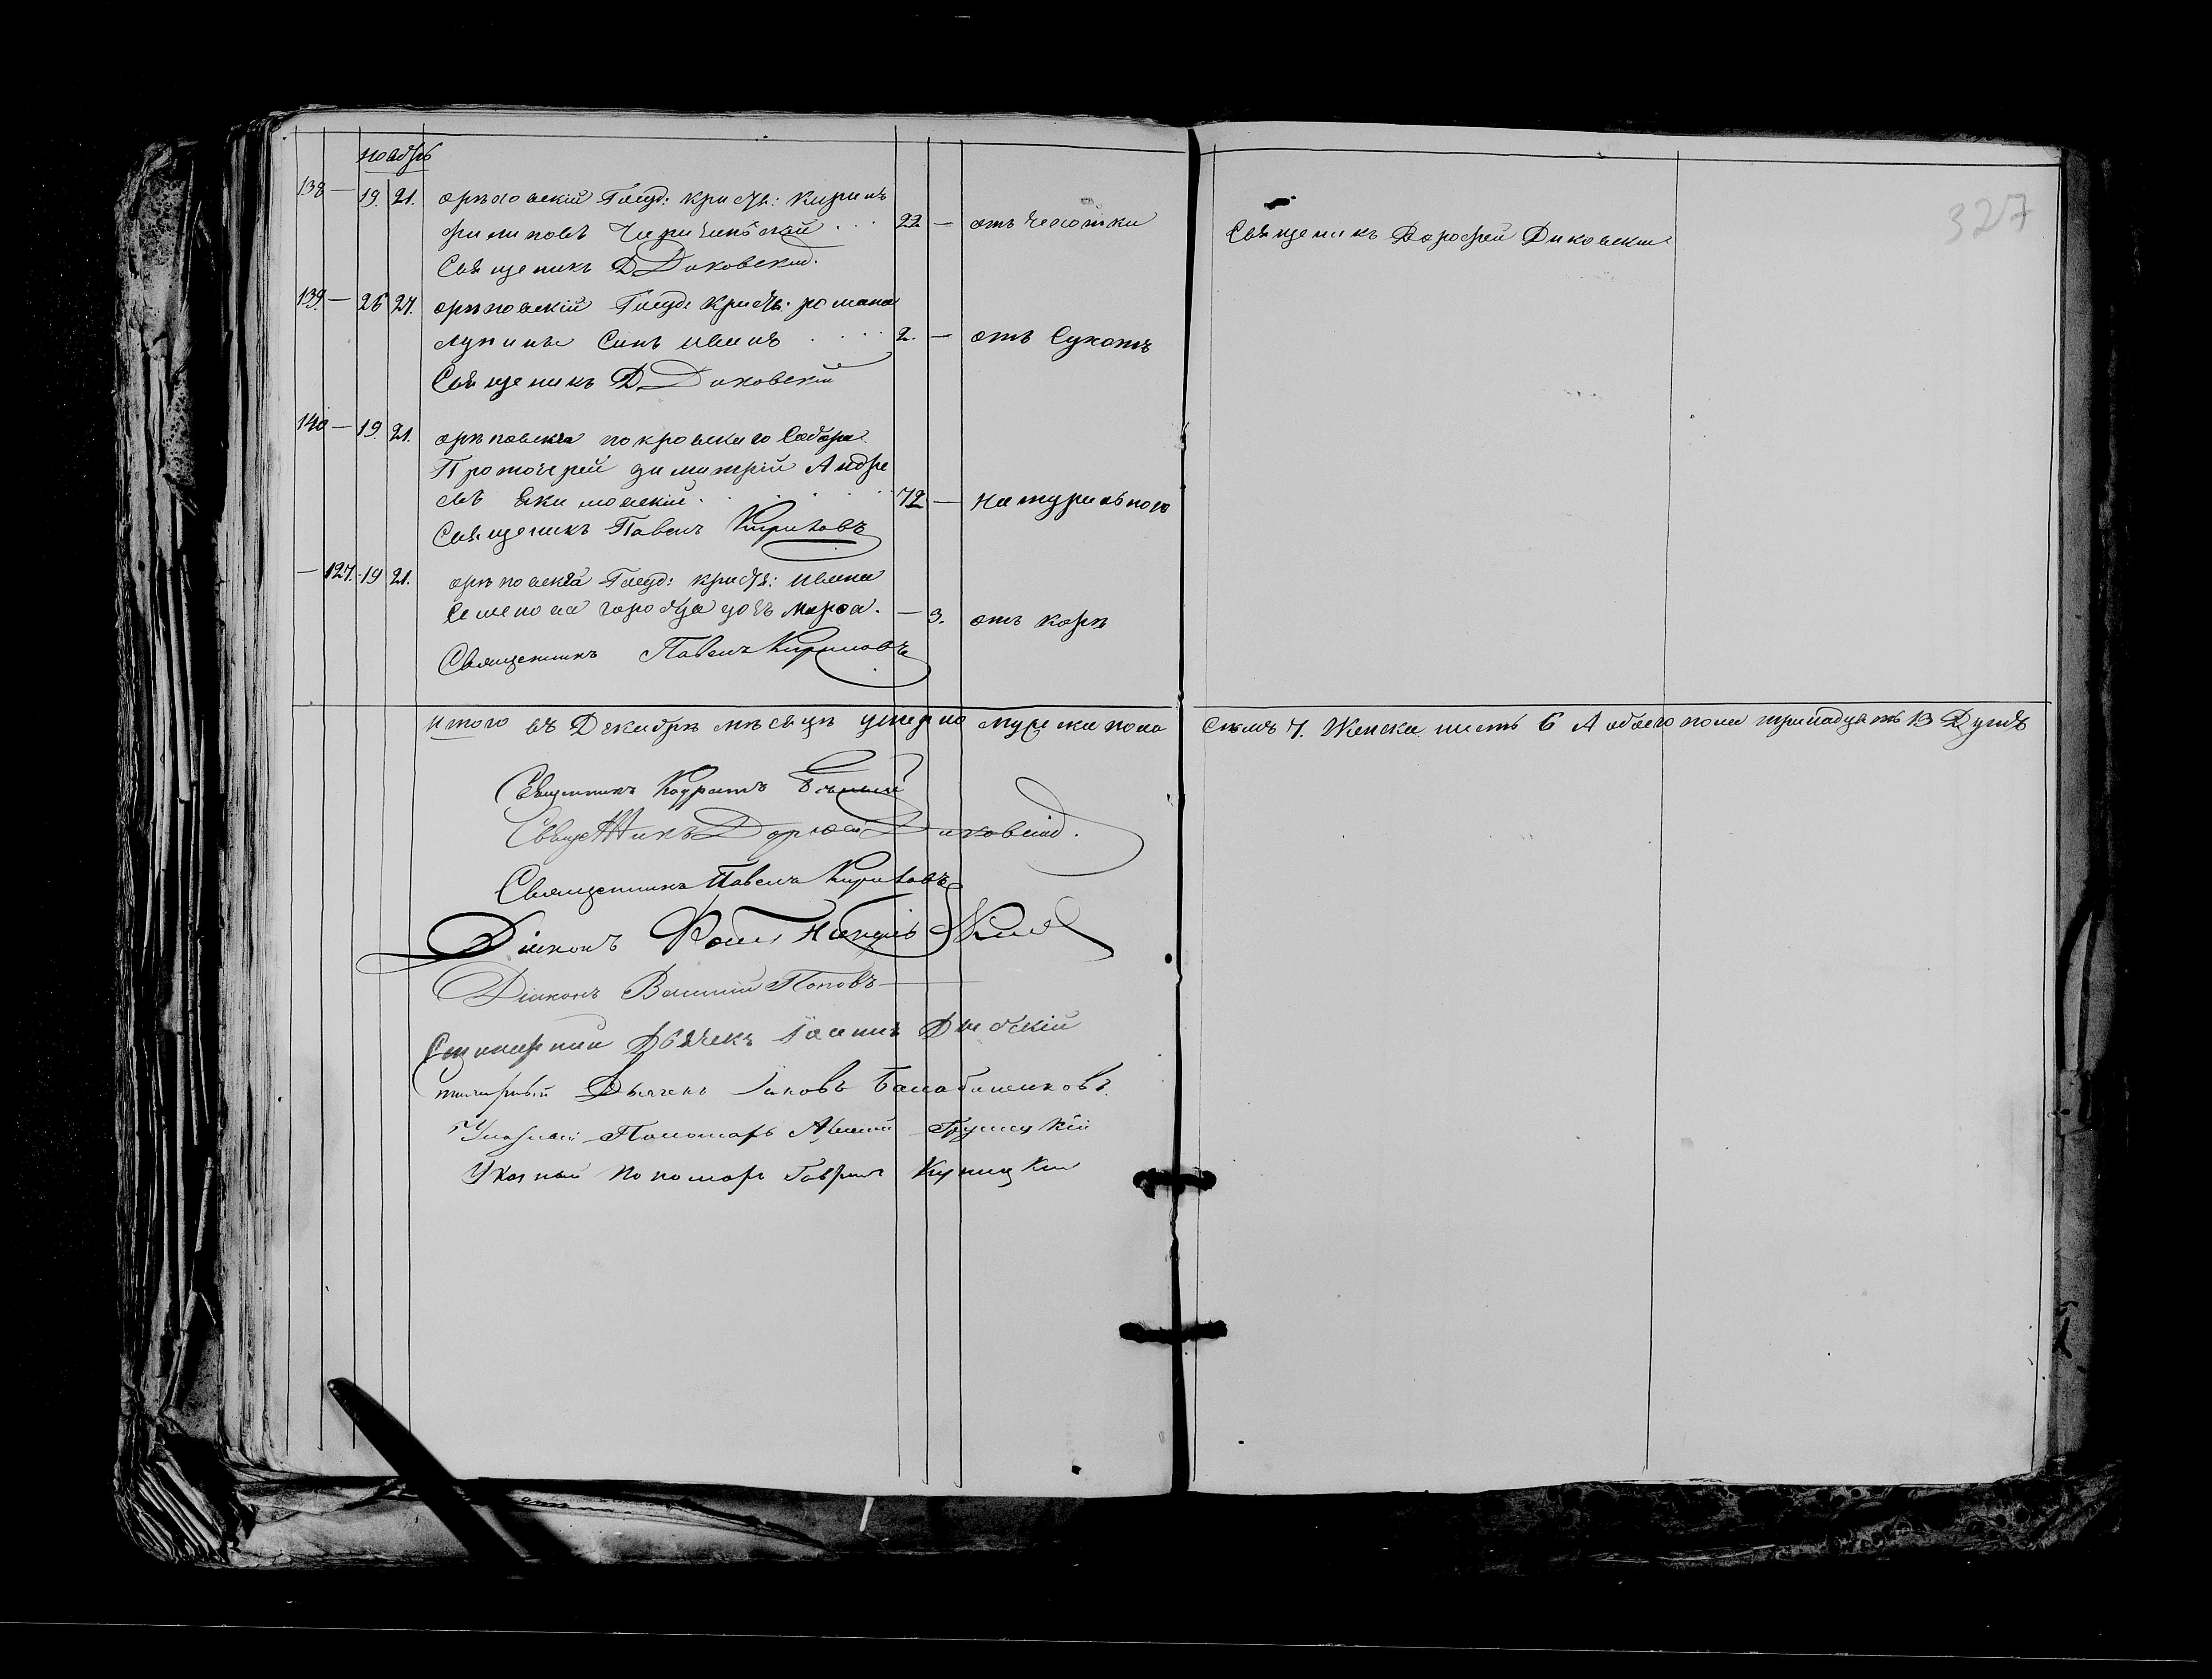 ноябрь
138 — 19. 21. орѣховскій Госуд: крестя: Кирилъ
филиповъ . . . 22 — отъ чесотки Священикъ Дорофей Диковскій
Священикъ Д Диковскій.
139 — 26 27. орѣховскій Госуд: крестя: романа
лукина Синъ иванъ . . . . 2. — отъ Сухотъ
Священикъ Д Диковскій
140 — 19. 21. орѣховска покровскаго Собора
Протоіерей димитрій Андре
евъ Екимовскій . . . . 72 — натуральною
Священикъ Павелъ Кириловъ
— 127. 19 21. орѣховска Госуд: крестя: ивана
Семенова дочь марфа. — 3. отъ кори
Священникъ Павелъ Кириловъ
итого въ Декабрѣ мѣсяцѣ умерло мужеска пола Семь 7. Женска шесть 6 А обоего пола тринадцать 13 Душъ
Священникъ Кодратъ
Священникъ Дорофей Диковскій.
Священникъ Павелъ Кириловъ
Діаконъ
Діаконъ Василій Поповъ
Дьячекъ Іоаннъ
Дьячекъ Іаковъ Балабаненковъ.
Указный Пономарь
Указный пономарь Гавриилъ Купицкій
327